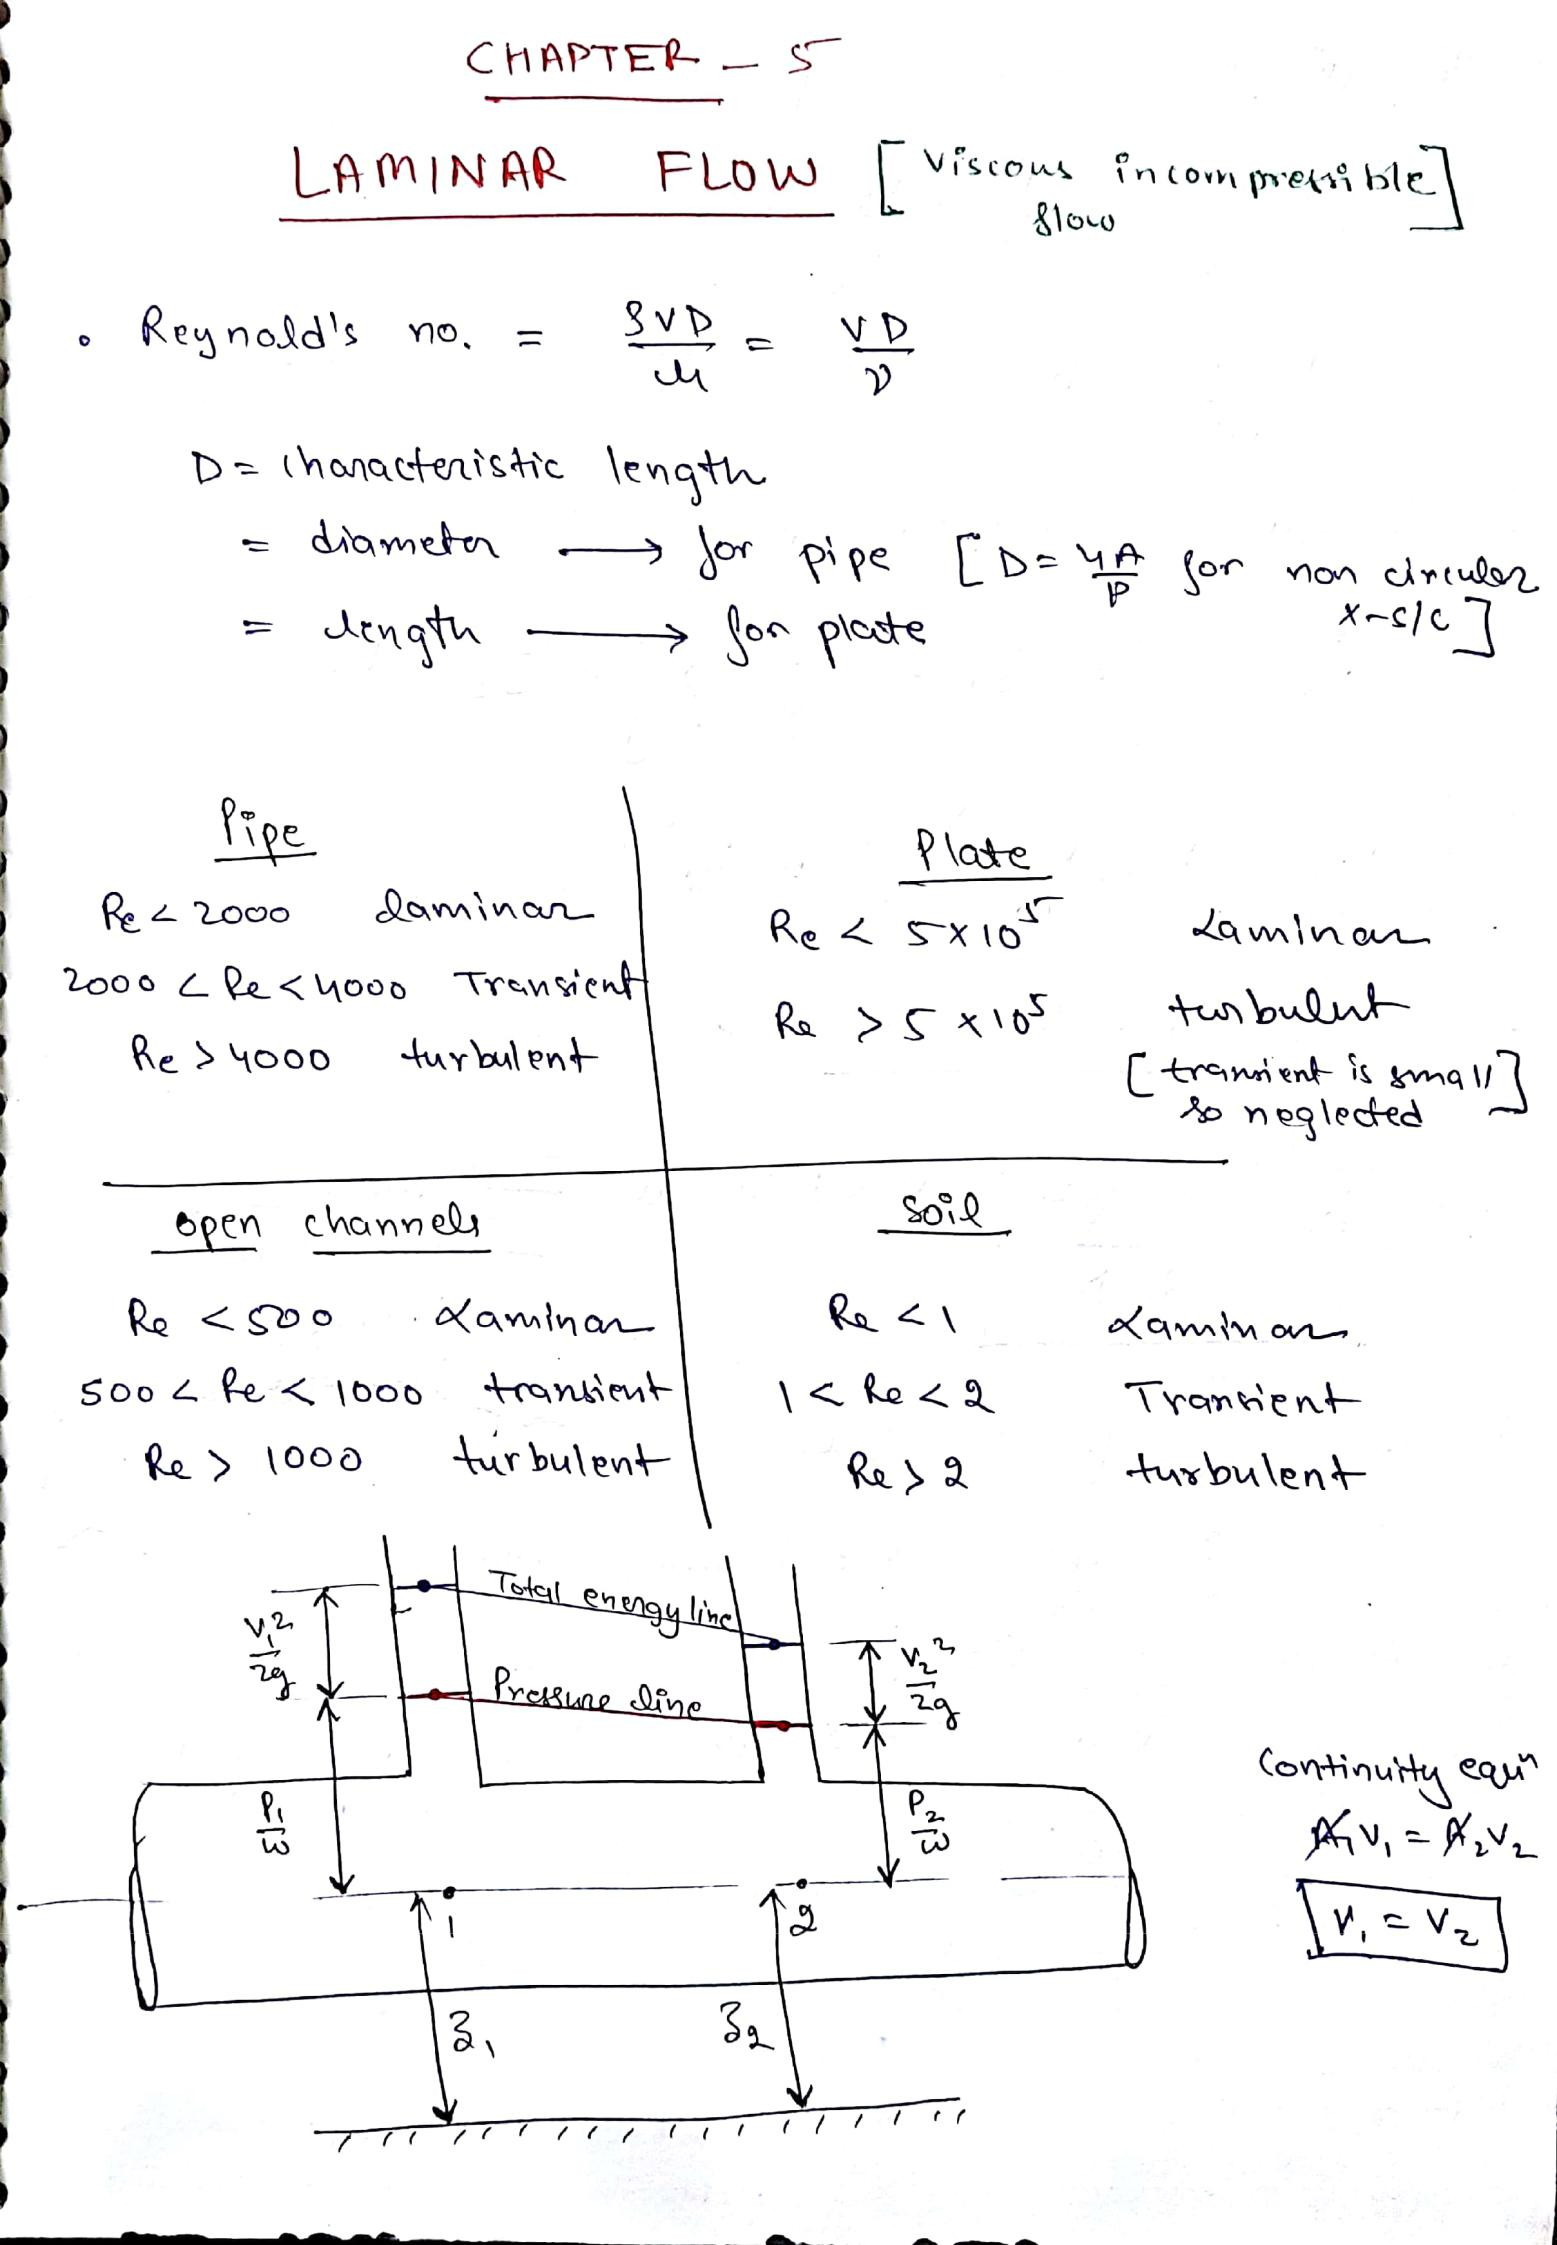 CHAPTER - 5
LAMINAR FLOW [Viscous incompressible flow]
• Reynold's no. = ρVD/μ = VD/ν
D = characteristic length
= diameter → for pipe [D = 4A/P for non circular x-s/c]
= length → for plate
Pipe
Re < 2000 Laminar
2000 < Re < 4000 Transient
Re > 4000 turbulent
Plate
Re < 5×10⁵ Laminar
Re > 5×10⁵ turbulent
[transient is small so neglected]
open channels
Re < 500 Laminar
500 < Re < 1000 transient
Re > 1000 turbulent
Soil
Re < 1 Laminar
1 < Re < 2 Transient
Re > 2 turbulent
Total energy line
V₁²/2g
V₂²/2g
Pressure line
P₁/w
P₂/w
Continuity equⁿ
A₁V₁ = A₂V₂
V₁ = V₂
1
2
z₁
z₂